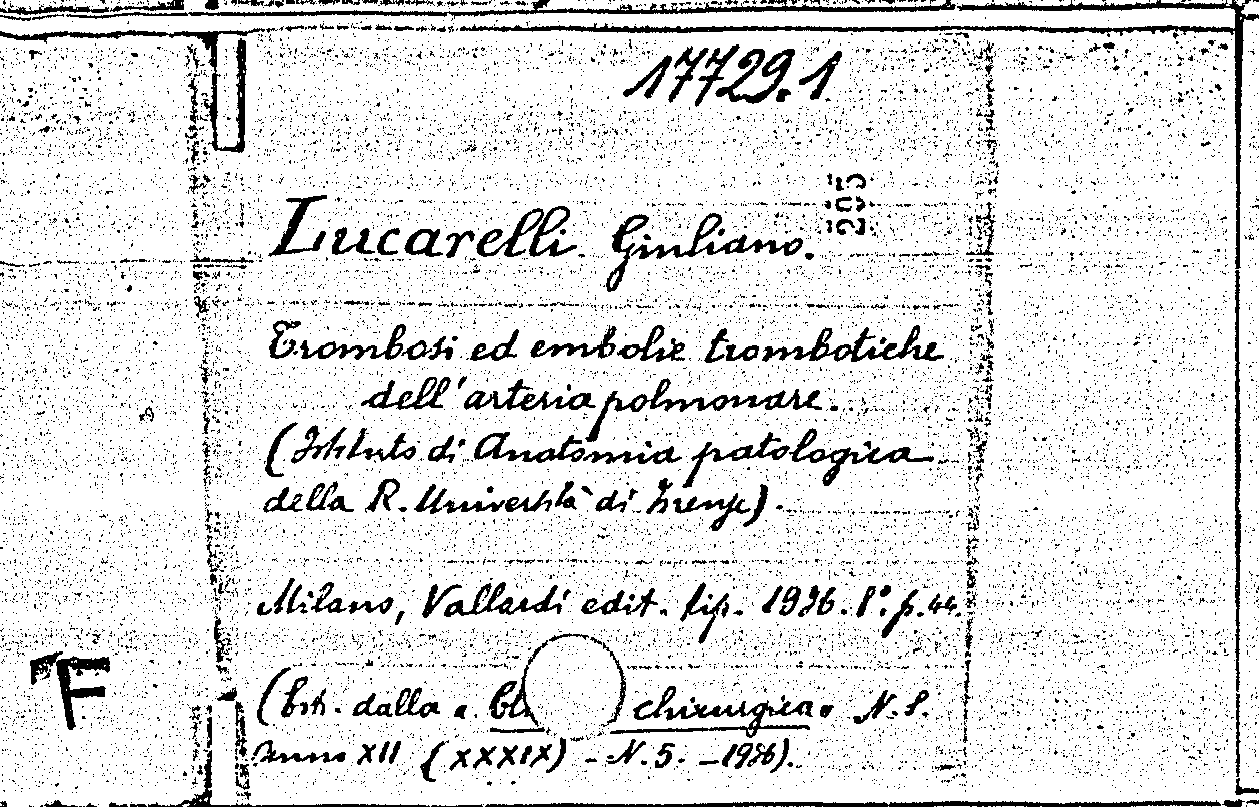 17729.1
205
Lucarelli Giuliano.
Trombosi ed embolie trombotiche
dell'arteria polmonare.
(Istituto di Anatomia patologica
della R. Università di Firenze).
Milano, Vallardi edit. tip. 1936. 8°. p. 44.
(Estr. dalla « chirurgica » N. S.
Anno XII (XXXIX) - N. 5. - 1936).
F